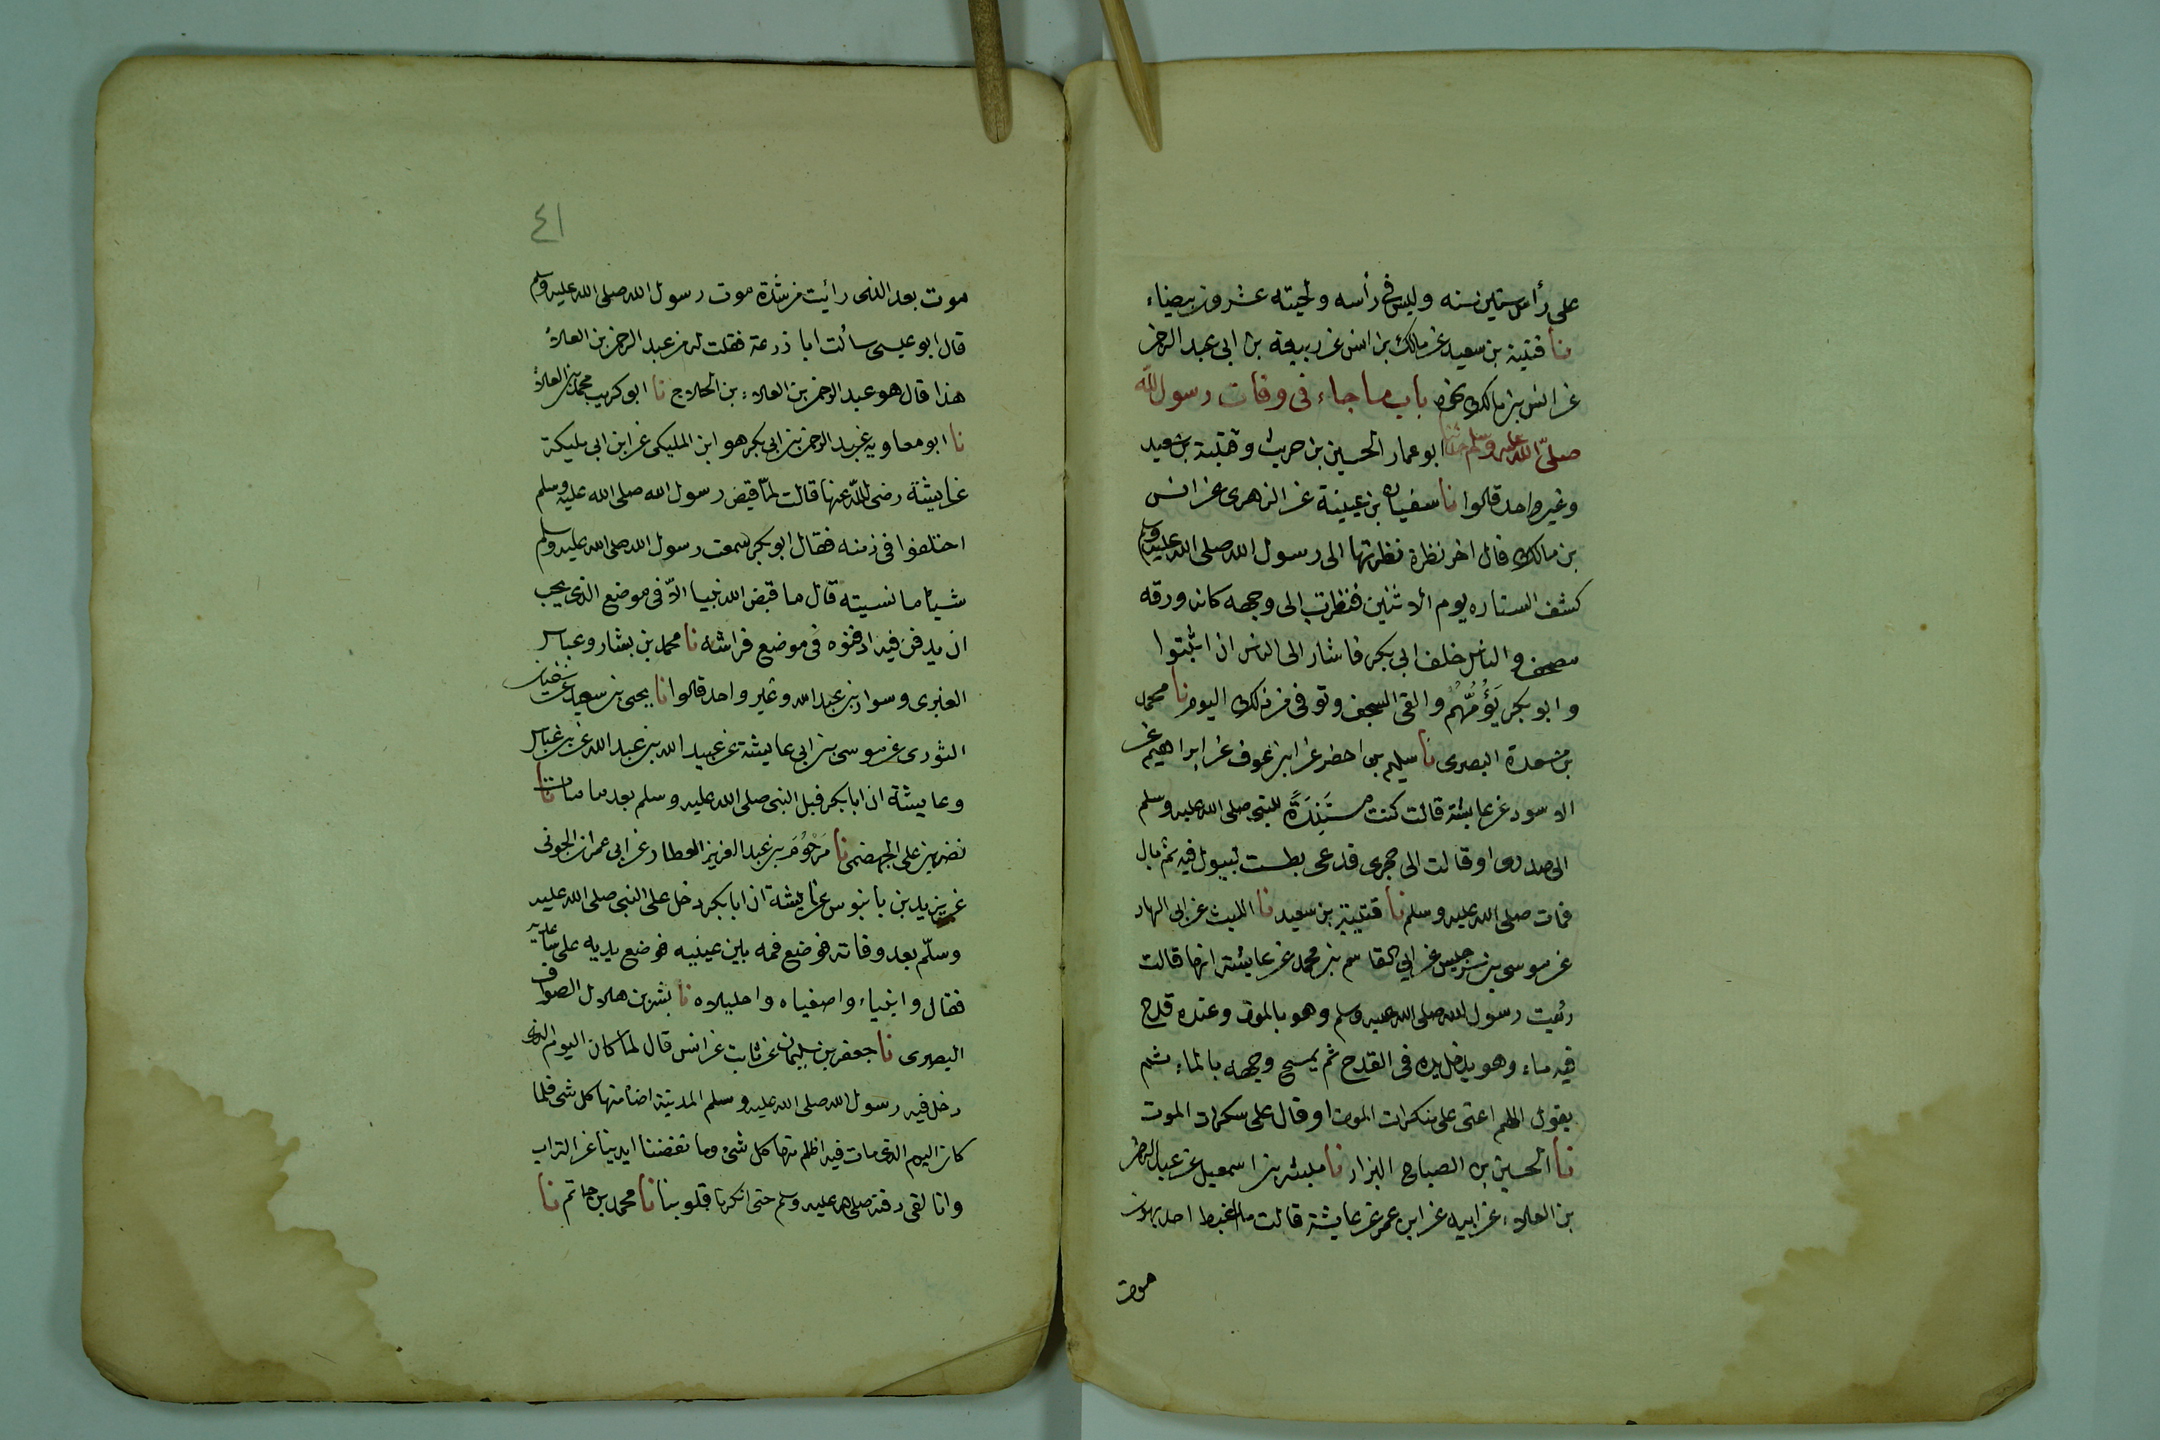 على رأس ستين سنه وليس فى رأسه ولحيته عشرون بيضاء
نا قتيبة بن سعيد عن مالك بن انس عن ربيعة بن ابى عبد الرحمن
عن انس بن مالك نحوه باب ما جاء فى وفات رسول الله
صلى الله عليه وسلم حدثنا ابو عمار الحسين بن حريث وقتيبة بن سعيد
وغير واحد قالوا نا سفيان بن عيينة عن الزهرى عن انس
بن مالك قال اخر نظرة نظرتها الى رسول الله صلى الله عليه وسلم
كشف الستاره يوم الاثنين فنظرت الى وجهه كانه ورقه
مصحف والناس خلف ابى بكر فاشار الى الناس ان اثبتوا
وابو بكر يَؤُمُّهُمْ والقى السجف وتوفى من ذلك اليوم نا محمد
بن مسعدة البصرى نا سليم بن اخضر عن ابن عوف عن ابراهيم عن
الاسود عن عايشة قالت كنت مستَنِدَةً للنبى صلى الله عليه وسلم
الى صدرى او قالت الى حجرى فدعى بطست ليبول فيه ثم بال
فمات صلى الله عليه وسلم نا قتيبة بن سعيد نا الليث عن ابى الهاد
عن موسى بن سرجيس عن ابى القاسم بن محمد عن عايشة انها قالت
رئيت رسول الله صلى الله عليه وسلم وهو بالموت وعنده قدح
فيه ماء وهو يدخل يده فى القدح ثم يمسح وجهه بالماء ثم
يقول اللهم اعنى على منكرات الموت او قال على سكرات الموت
نا الحسين بن الصباح البزار نا مبشر بن اسمعيل عن عبد الرحمن
بن العلاء عن ابيه عن ابن عمر عن عايشة قالت ما اغبط احد بهون
موت
٤١
موت بعد الذى رائيت من شدة موت رسول الله صلى الله عليه وسلم
قال ابو عيسى سائت ابا ذرعة فقلت له من عبد الرحمن بن العلاء
هذا قال هو عبد الرحمن بن العلاء بن الحلاج نا ابو كريب محمد بن العلاء
نا ابو معاويه عن عبد الرحمن بن ابى بكر هو ابن المليكى عن ابن ابى مليكة
عن عايشة رضى الله عنها قالت لمّا قبض رسول الله صلى الله عليه وسلم
اختلفوا فى دفنه فقال ابو بكر سمعت رسول الله صلى الله عليه وسلم
شيئا ما نسيته قال ما قبض الله نبيا الاّ فى موضع الذى يجب
ان يدفن فيه ادفنوه فى موضع فراشه نا محمد بن بشار وعباس
العنبرى وسوار بن عبد الله وغير واحد قالوا نا يحيى بن سعيد عن سفيان
الثورى عن موسى بن ابى عايشة عن عبيد الله بن عبد الله عن بن عباس
وعايشة ان ابا بكر قبل النبى صلى الله عليه وسلم بعد ما مات نا
نضر بن على الجهضمى نا مَرْحُوم بن عبد العزيز العطار عن ابى عمران الجونى
عن يزيد بن بابنوس عن عايشة ان ابا بكر دخل على النبى صلى الله عليه
وسلّم بعد وفاته فوضع فمه بين عينيه فوضع يديه على ساعديه
فقال وا نبياه وا صفياه وا خليلاه نا بشر بن هلال الصواف
البصرى نا جعفر بن سليمان عن ثابت عن انس قال لما كان اليوم الذى
دخل فيه رسول الله صلى الله عليه وسلم المدينة اضاء منها كل شى فلما
كان اليوم الذى مات فيه اظلم منها كل شئ وما نفضنا ايدينا عن التراب
وانا لفى دفنه صلى الله عليه وسلم حتى انكرنا قلوبنا نا محمد بن حاتم نا